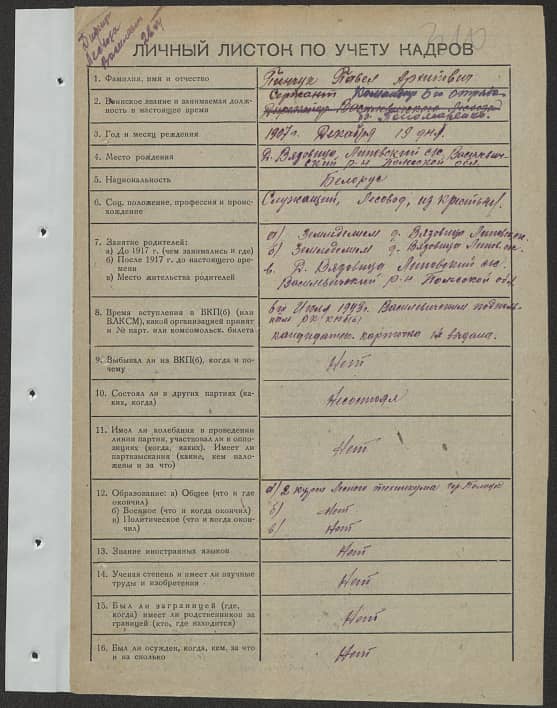 Директ.
Лесхоза
ЛИЧНЫЙ ЛИСТОК ПО УЧЕТУ КАДРОВ
1. Фамилия, имя и отчество
Пинчук Павел Архипович
2. Воинское звание и занимаемая долж-
ность в настоящее время
Сержант Командир
Директор Василевичского Лесхоза
им. Пономаренко.
3. Год и месяц рождения
1907 г. Декабря 19 дня.
4. Место рождения
Д. Вядовица, Липовский с/с. Василевич-
ский р-н Полесской обл.
5. Национальность
Белорус
6. Соц. положение, профессия и проис-
хождение
Служащий, Лесовод, из крестьян.
7. Занятие родителей:
а) До 1917 г. (чем занимались и где)
б) После 1917 г. до настоящего вре-
мени
в) Место жительства родителей
а) Земледелием д. Вядовица Липовск.
б) Земледелием д. Вядовица Липов. с/с.
в. Д. Вядовица Липовский с/с.
Василевичский р-н Полесской обл
8. Время вступления в ВКП(б) (или
ВЛКСМ), какой организацией принят
и № парт. или комсомольск. билета
Июля 1943 г. Василевичским подполь-
ным РК КП(б)Б
кандидатск. карточка не выдана.
9. Выбывал ли из ВКП(б), когда и по-
чему
Нет
10. Состоял ли в других партиях (ка-
ких, когда)
Несостоял
11. Имел ли колебания в проведении
линии партии, участвовал ли в оппо-
зициях (когда, каких). Имеет ли
партвзыскания (какие, кем нало-
жены и за что)
Нет
12. Образование: а) Общее (что и где
окончил)
б) Военное (что и когда окончил)
в) Политическое (что и когда окон-
чил)
а) 2 курса Лесного техникума
б) Нет
в) Нет
13. Знание иностранных языков
Нет
14. Ученая степень и имеет ли научные
труды и изобретения
Нет
15. Был ли заграницей (где,
когда) имеет ли родственников за
границей (кто, где находится)
Нет
16. Был ли осужден, когда, кем, за что
и на сколько
Нет